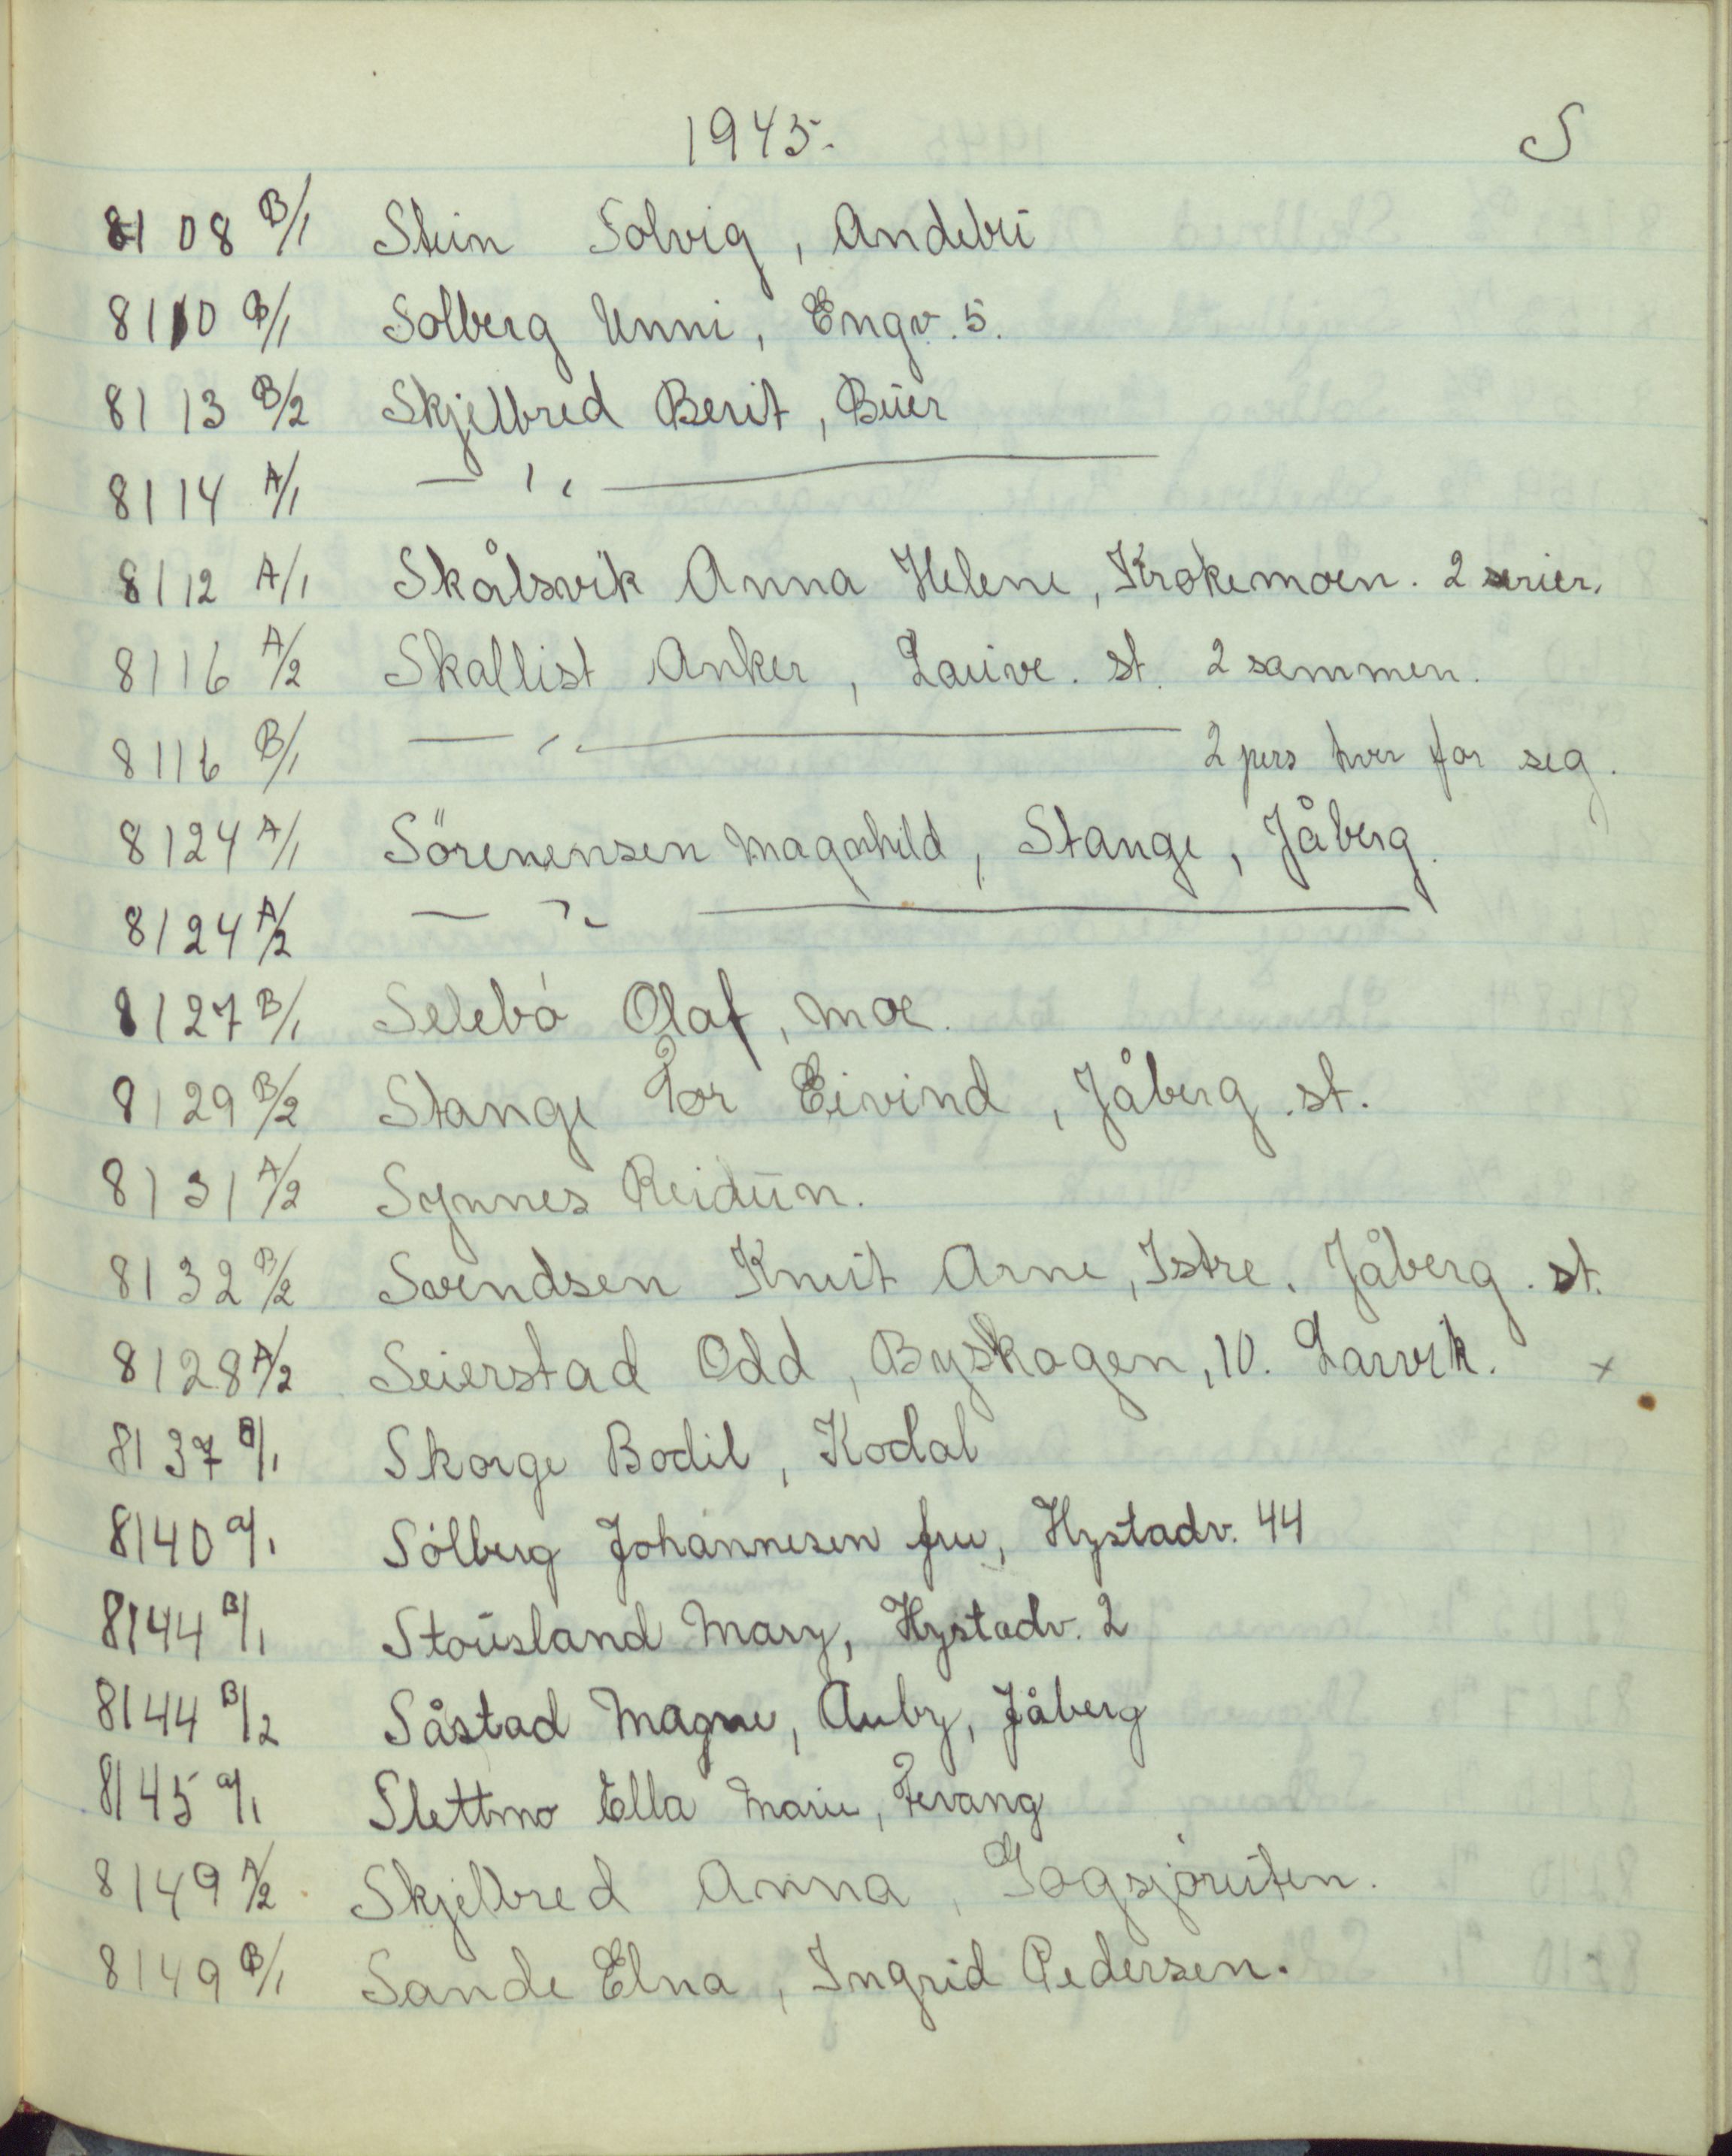 1945. S
8108 B/1 Stein Solvig, Andebu
8110 B/1 Solberg Unni, Engv. 5.
8113 B/2 Skjelbred Berit, Buer
8114 A/1 — " —
8112 A/1 Skålsvik Anna Helene, Krokemoen. 2 serier.
8116 A/2 Skallist Anker, Lauve. st. 2 sammen.
8116 B/1 — " — 2 pers hver for seg.
8124 A/1 Sörenensen Magnhild, Stange, Jåberg.
8124 A/2 — " —
8127 B/1 Selebó Olaf, Moe.
8129 B/2 Stange Tor Eivind, Jåberg .st.
8131 A/2 Synnes Reidun.
8132 B/2 Svendsen Knut Arne, Istre. Jåberg. st.
8128 A/2 Seierstad Odd, Byskogen, 10. Larvik. x
8137 B/1 Skorge Bodil, Kodal
8140 a/1 Sólberg Johannesen fru, Hystadv. 44
8144 B/1 Stousland Mary, Hystadv. 2
8144 B/2 Såstad Magne, Auby, Jåberg
8145 a/1 Slettmo Ella Marie, Fevang
8149 A/2 Skjelbred Anna, Gogsjóruten.
8149 B/1 Sande Elna, Ingrid Pedersen.